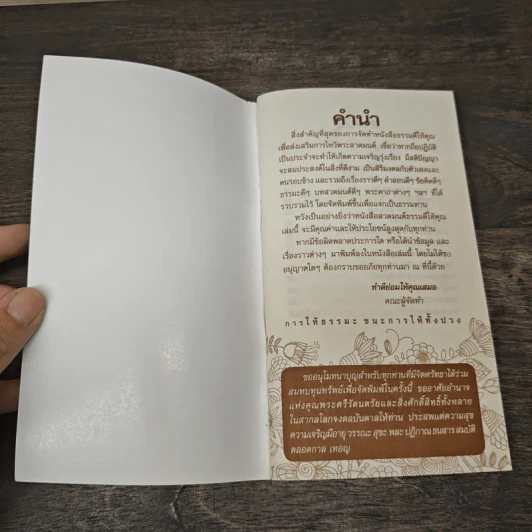 คำนำ
สิ่งสำคัญที่สุดของการจัดทำหนังสือธรรมดีให้คุณ
เพื่อส่งเสริมการไหว้พระสวดมนต์ เชื่อว่าหากถือปฏิบัติ
เป็นประจำจะทำให้เกิดความเจริญรุ่งเรือง มีสติปัญญา
จะสมประสงค์ในสิ่งที่ดีงาม เป็นสิริมงคลกับตัวเองและ
คนรอบข้าง และรวมถึงเรื่องราวดีๆ คำสอนดีๆ ข้อคิดดีๆ
ธรรมะดีๆ บทสวดมนต์ดีๆ พระคาถาต่างๆ ฯลฯ ที่ได้
รวบรวมไว้ โดยจัดพิมพ์ขึ้นเพื่อแจกเป็นธรรมทาน
หวังเป็นอย่างยิ่งว่าหนังสือสวดมนต์ธรรมดีให้คุณ
เล่มนี้ จะมีคุณค่าและให้ประโยชน์สูงสุดกับทุกท่าน
หากมีข้อผิดพลาดประการใด หรือได้นำข้อมูล และ
เรื่องราวต่างๆ มาพิมพ์ลงในหนังสือเล่มนี้ โดยไม่ได้ขอ
อนุญาตใดๆ ต้องกราบขออภัยทุกท่านมา ณ ที่นี้ด้วย
ทำดีย่อมให้คุณเสมอ
คณะผู้จัดทำ
การให้ธรรมะ ชนะการให้ทั้งปวง
ขออนุโมทนาบุญสำหรับทุกท่านที่มีจิตศรัทธาได้ร่วม
สมทบทุนทรัพย์เพื่อจัดพิมพ์ในครั้งนี้ ขออาศัยอำนาจ
แห่งคุณพระศรีรัตนตรัยและสิ่งศักดิ์สิทธิ์ทั้งหลาย
ในสากลโลกจงดลบันดาลให้ท่าน ประสพแต่ความสุข
ความเจริญมีอายุ วรรณะ สุขะ พละ ปฏิภาณ ธนสาร สมบัติ
ตลอดกาล เทอญ